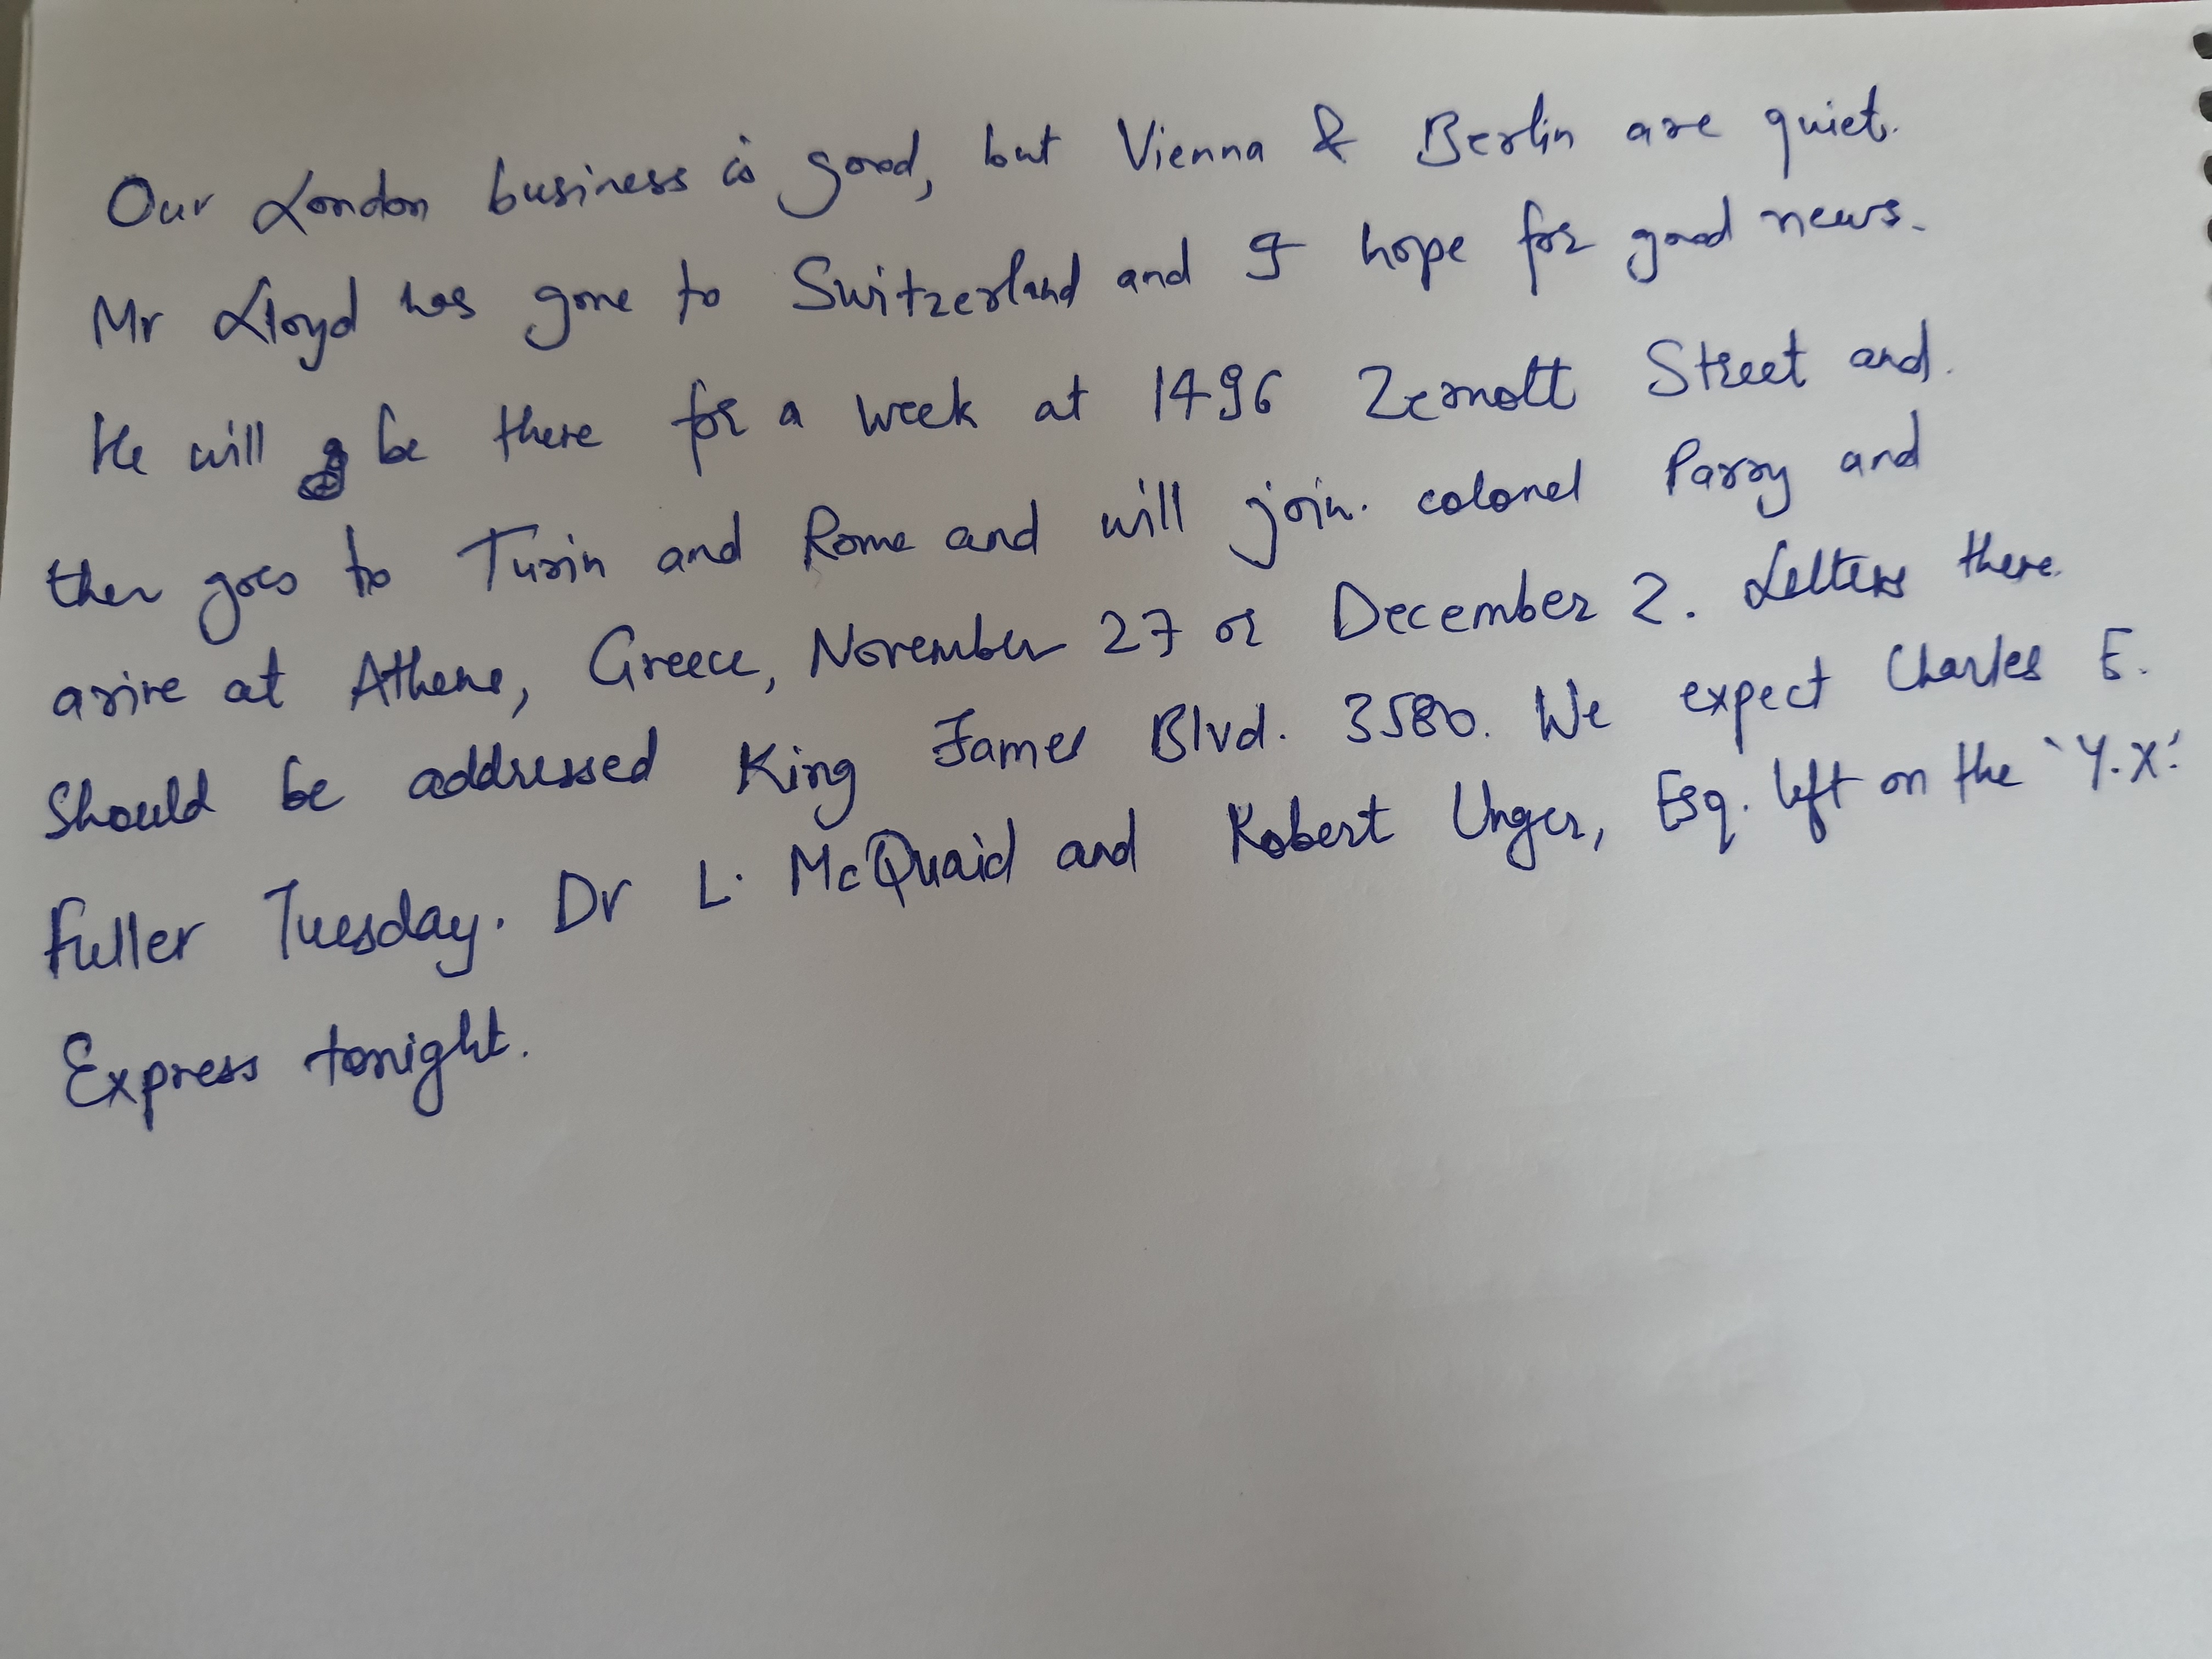 Our London business is good, but Vienna & Berlin are quiet.
Mr Lloyd has gone to Switzerland and I hope for good news.
He will be there for a week at 1496 Zermott Street and.
then goes to Turin and Rome and will join. colonel Parry and
arive at Athens, Greece, November 27 or December 2. Letters there.
Should be addressed King James Blvd. 3580. We expect Charles E.
Fuller Tuesday. Dr L. McQuaid and Robert Unger, Esq. left on the 'Y.X.'
Express tonight.